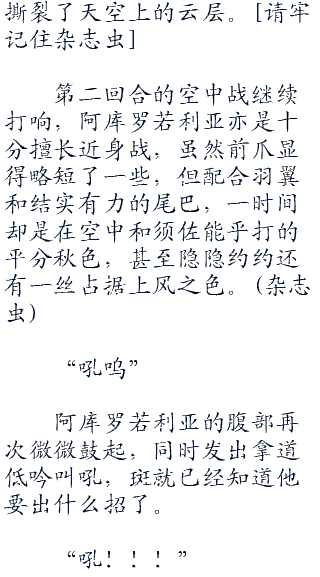 撕裂了天空上的云层。[请牢
记住杂志虫]
第二回合的空中战继续
打响，阿库罗若利亚亦是十
分擅长近身战，虽然前爪显
得略短了一些，但配合羽翼
和结实有力的尾巴，一时间
却是在空中和须佐能乎打的
平分秋色，甚至隐隐约约还
有一丝占据上风之色。(杂志
虫)
“吼呜”
阿库罗若利亚的腹部再
次微微鼓起，同时发出拿道
低吟叫吼，斑就已经知道他
要出什么招了。
“吼！！！”